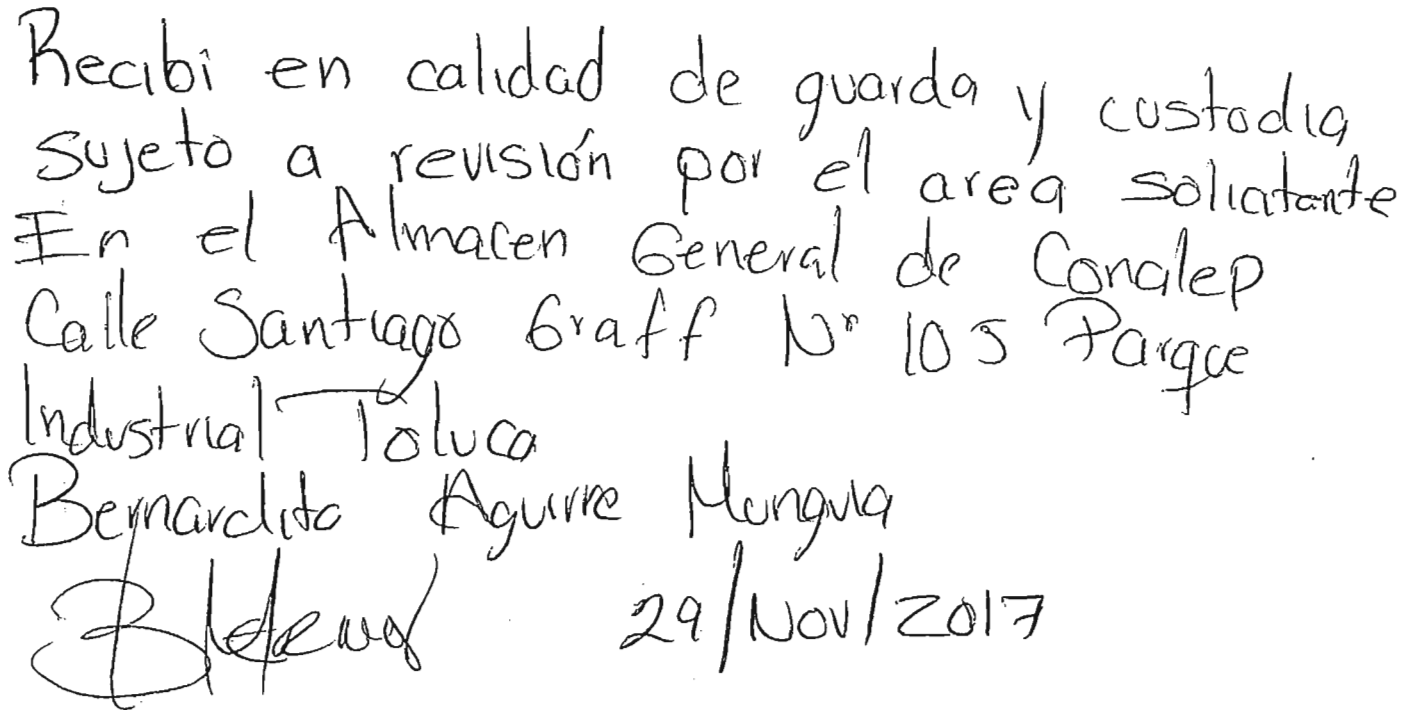 Recibi en calidad de guarda y custodia
sujeto a revisión por el area solicitante
En el Almacen General de Conalep
Calle Santiago Graff N° 105 Parque
Industrial Toluca
Bernardita Aguirre Munguia
29/Nov/2017